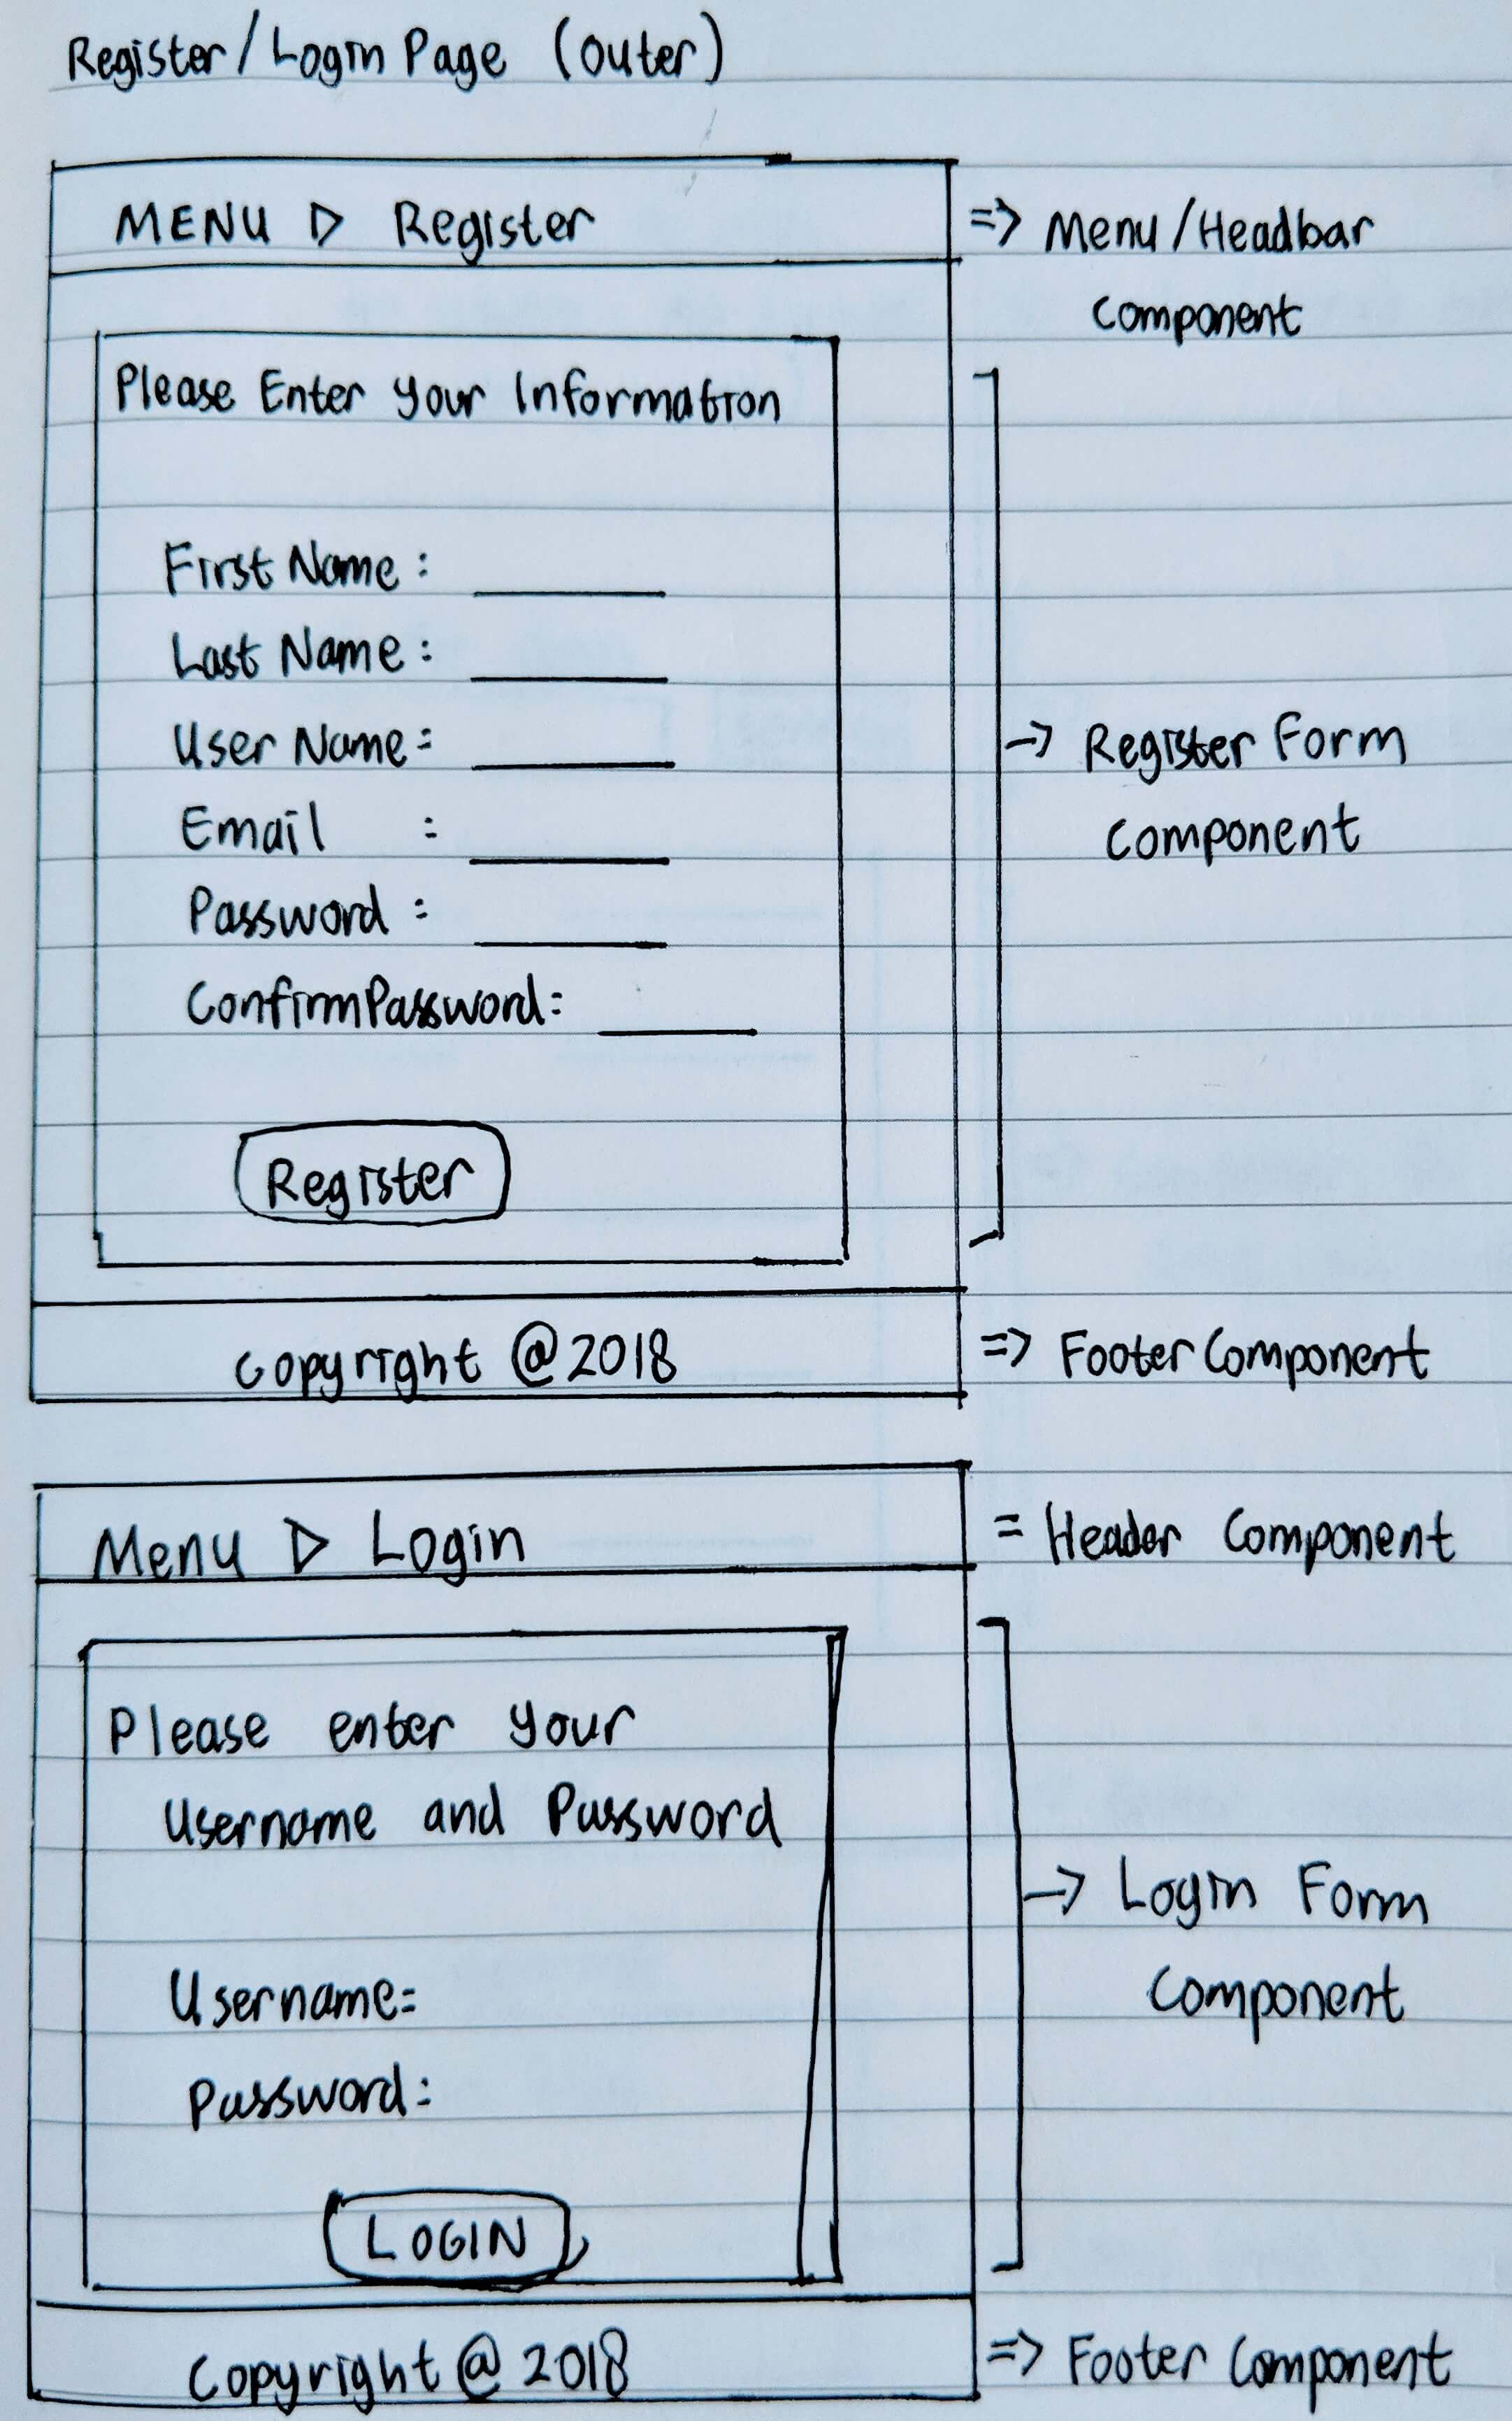 Register/Login Page (outer)
MENU ▷ Register => Menu/Headbar
Component
Please Enter your Information
First Name :
Last Name :
User Name :
Email :
Password :
ConfirmPassword:
Register
-> Register Form
Component
Copyright @2018 => Footer Component
Menu ▷ Login = Header Component
Please enter your
Username and Password
-> Login Form
Component
Username:
Password:
LOGIN
Copyright @ 2018 => Footer Component